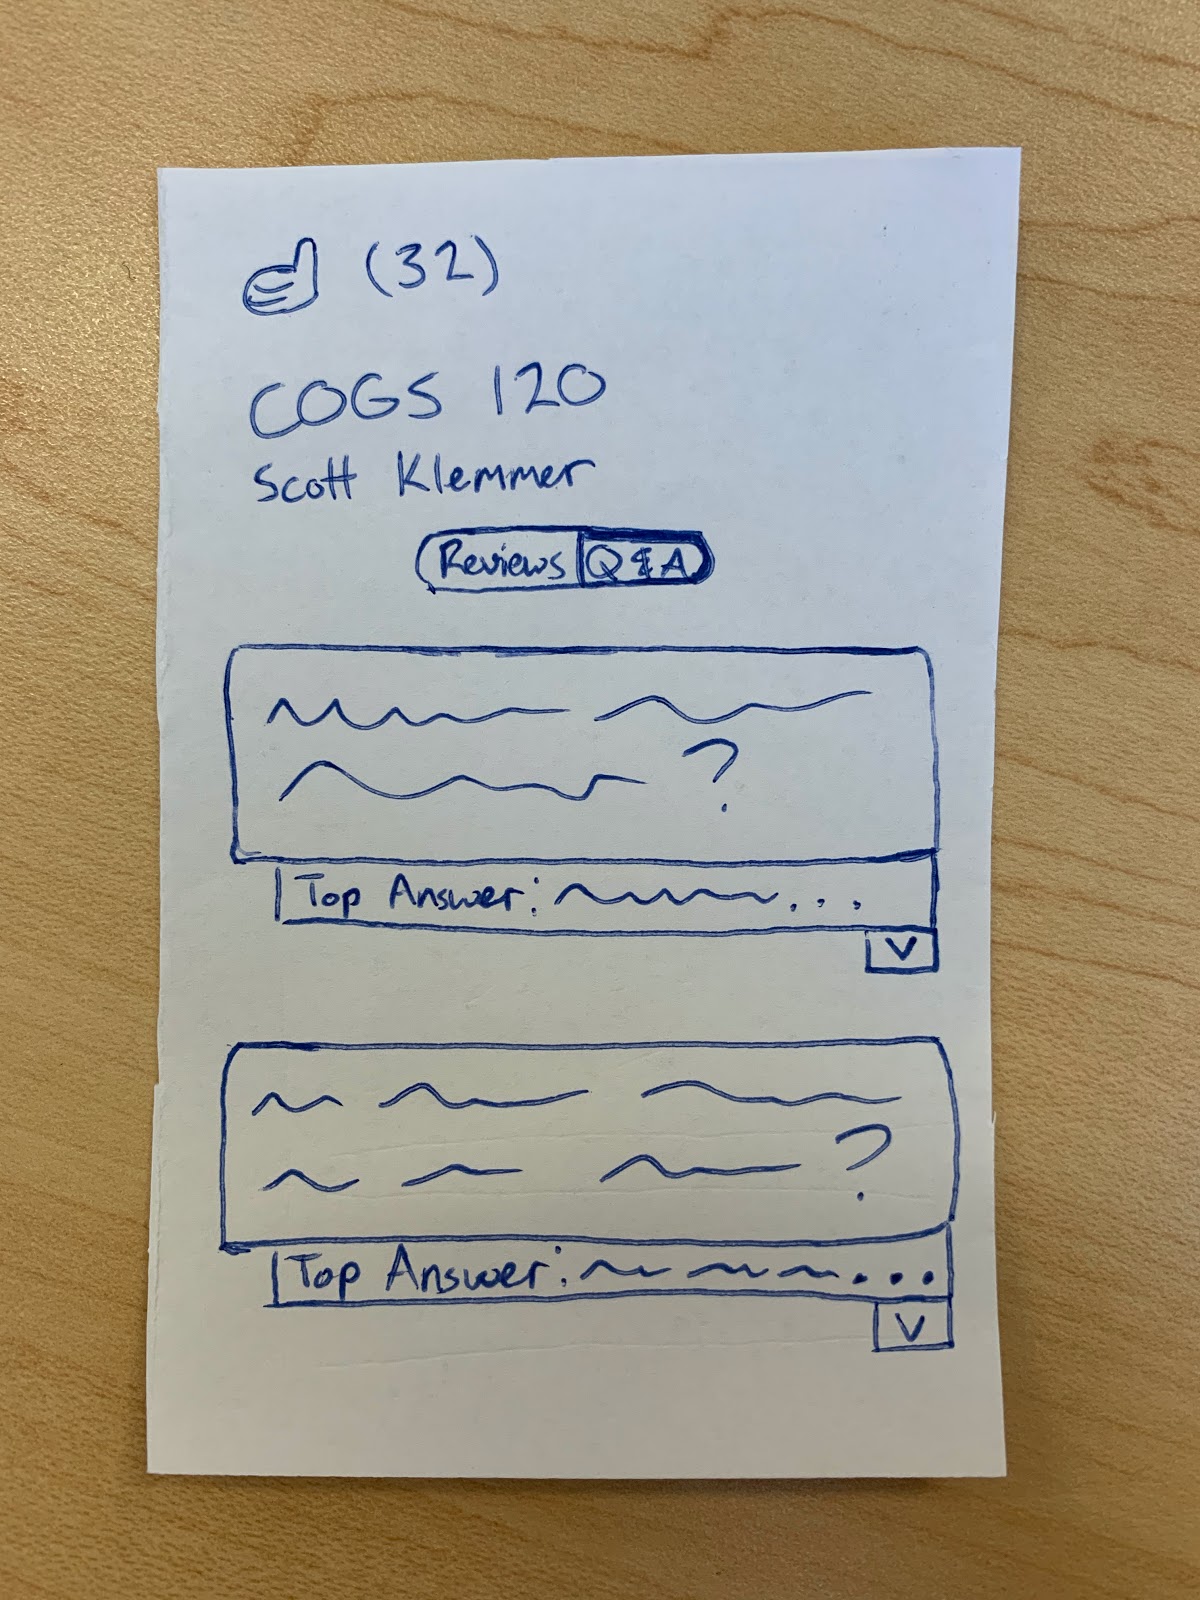 (32)
COGS 120
Scott Klemmer
Reviews Q&A
?
Top Answer: ...
V
?
Top Answer: ...
V